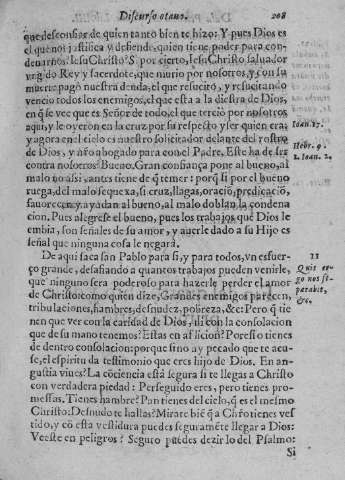 Discurso otauo. 208
que desconfiar de quien tanto bien te hizo. Y pues Dios es
el que nos justifica y defiende, quien tiene poder para con-
denarnos? Iesu Christo? Si por cierto, Iesu Christo saluador
vngido Rey y sacerdote, que murio por nosotros, y con su
muerte pagò nuestra deuda, el que resucitò, y resucitando
vencio todos los enemigos, el que esta a la diestra de Dios,
en q̃ se vee que es Señor de todo, el que terciò por nosotros
aqui, y le oyeron en la cruz por su respecto y ser quien era;
y agora en el cielo es nuestro solicitador delante del rostro
de Dios, y nr̃o abogado para con el Padre. Este ha de ser
contra nosotros? Bueno. Gran confiança pone al bueno, al
malo no assi, antes tiene de q̃ temer: porq̃ si por el bueno
ruega, del malo se quexa, si cruz, llagas, oraciõ, predicaciõ,
fauorecen y ayudan al bueno, al malo doblan la condena
cion. Pues alegrese el bueno, pues los trabajos que Dios le
embia, son señales de su amor, y auerle dado a su Hijo es
señal que ninguna cosa le negarà.
De aqui saca san Pablo para si, y para todos, vn esfuer-
ço grande, desafiando a quantos trabajos pueden venirle,
que ninguno sera poderoso para hazerle perder el amor
de Christo: como quien dize, Grandes enemigos parecen,
tribulaciones, hambres, desnudez, pobreza, &c: Pero q̃ tie
nen que ver con la caridad de Dios, ni con la consolacion
que de su mano tenemos? Estas en afliccion? Por esso tienes
de dentro consolacion: porque sino ay pecado que te acu-
se, el espiritu da testimonio que eres hijo de Dios, En an-
gustia viues? La cõciencia està segura si te llegas a Christo
con verdadera piedad: Perseguido eres, pero tienes pro-
messas. Tienes hambre? Pan tienes del cielo, q̃ es el mesmo
Christo: Desnudo te hallas? Mirate biẽ q̃ a Chr̃o tienes ves
tido, y cõ esta vestidura puedes seguramẽte llegar a Dios:
Veeste en peligros? Seguro puedes dezir lo del Psalmo:
Si
Ioan. 17.
Hebr. 9.
1. Ioan. 2.
11
Quis er-
go nos se-
parabit,
&c.